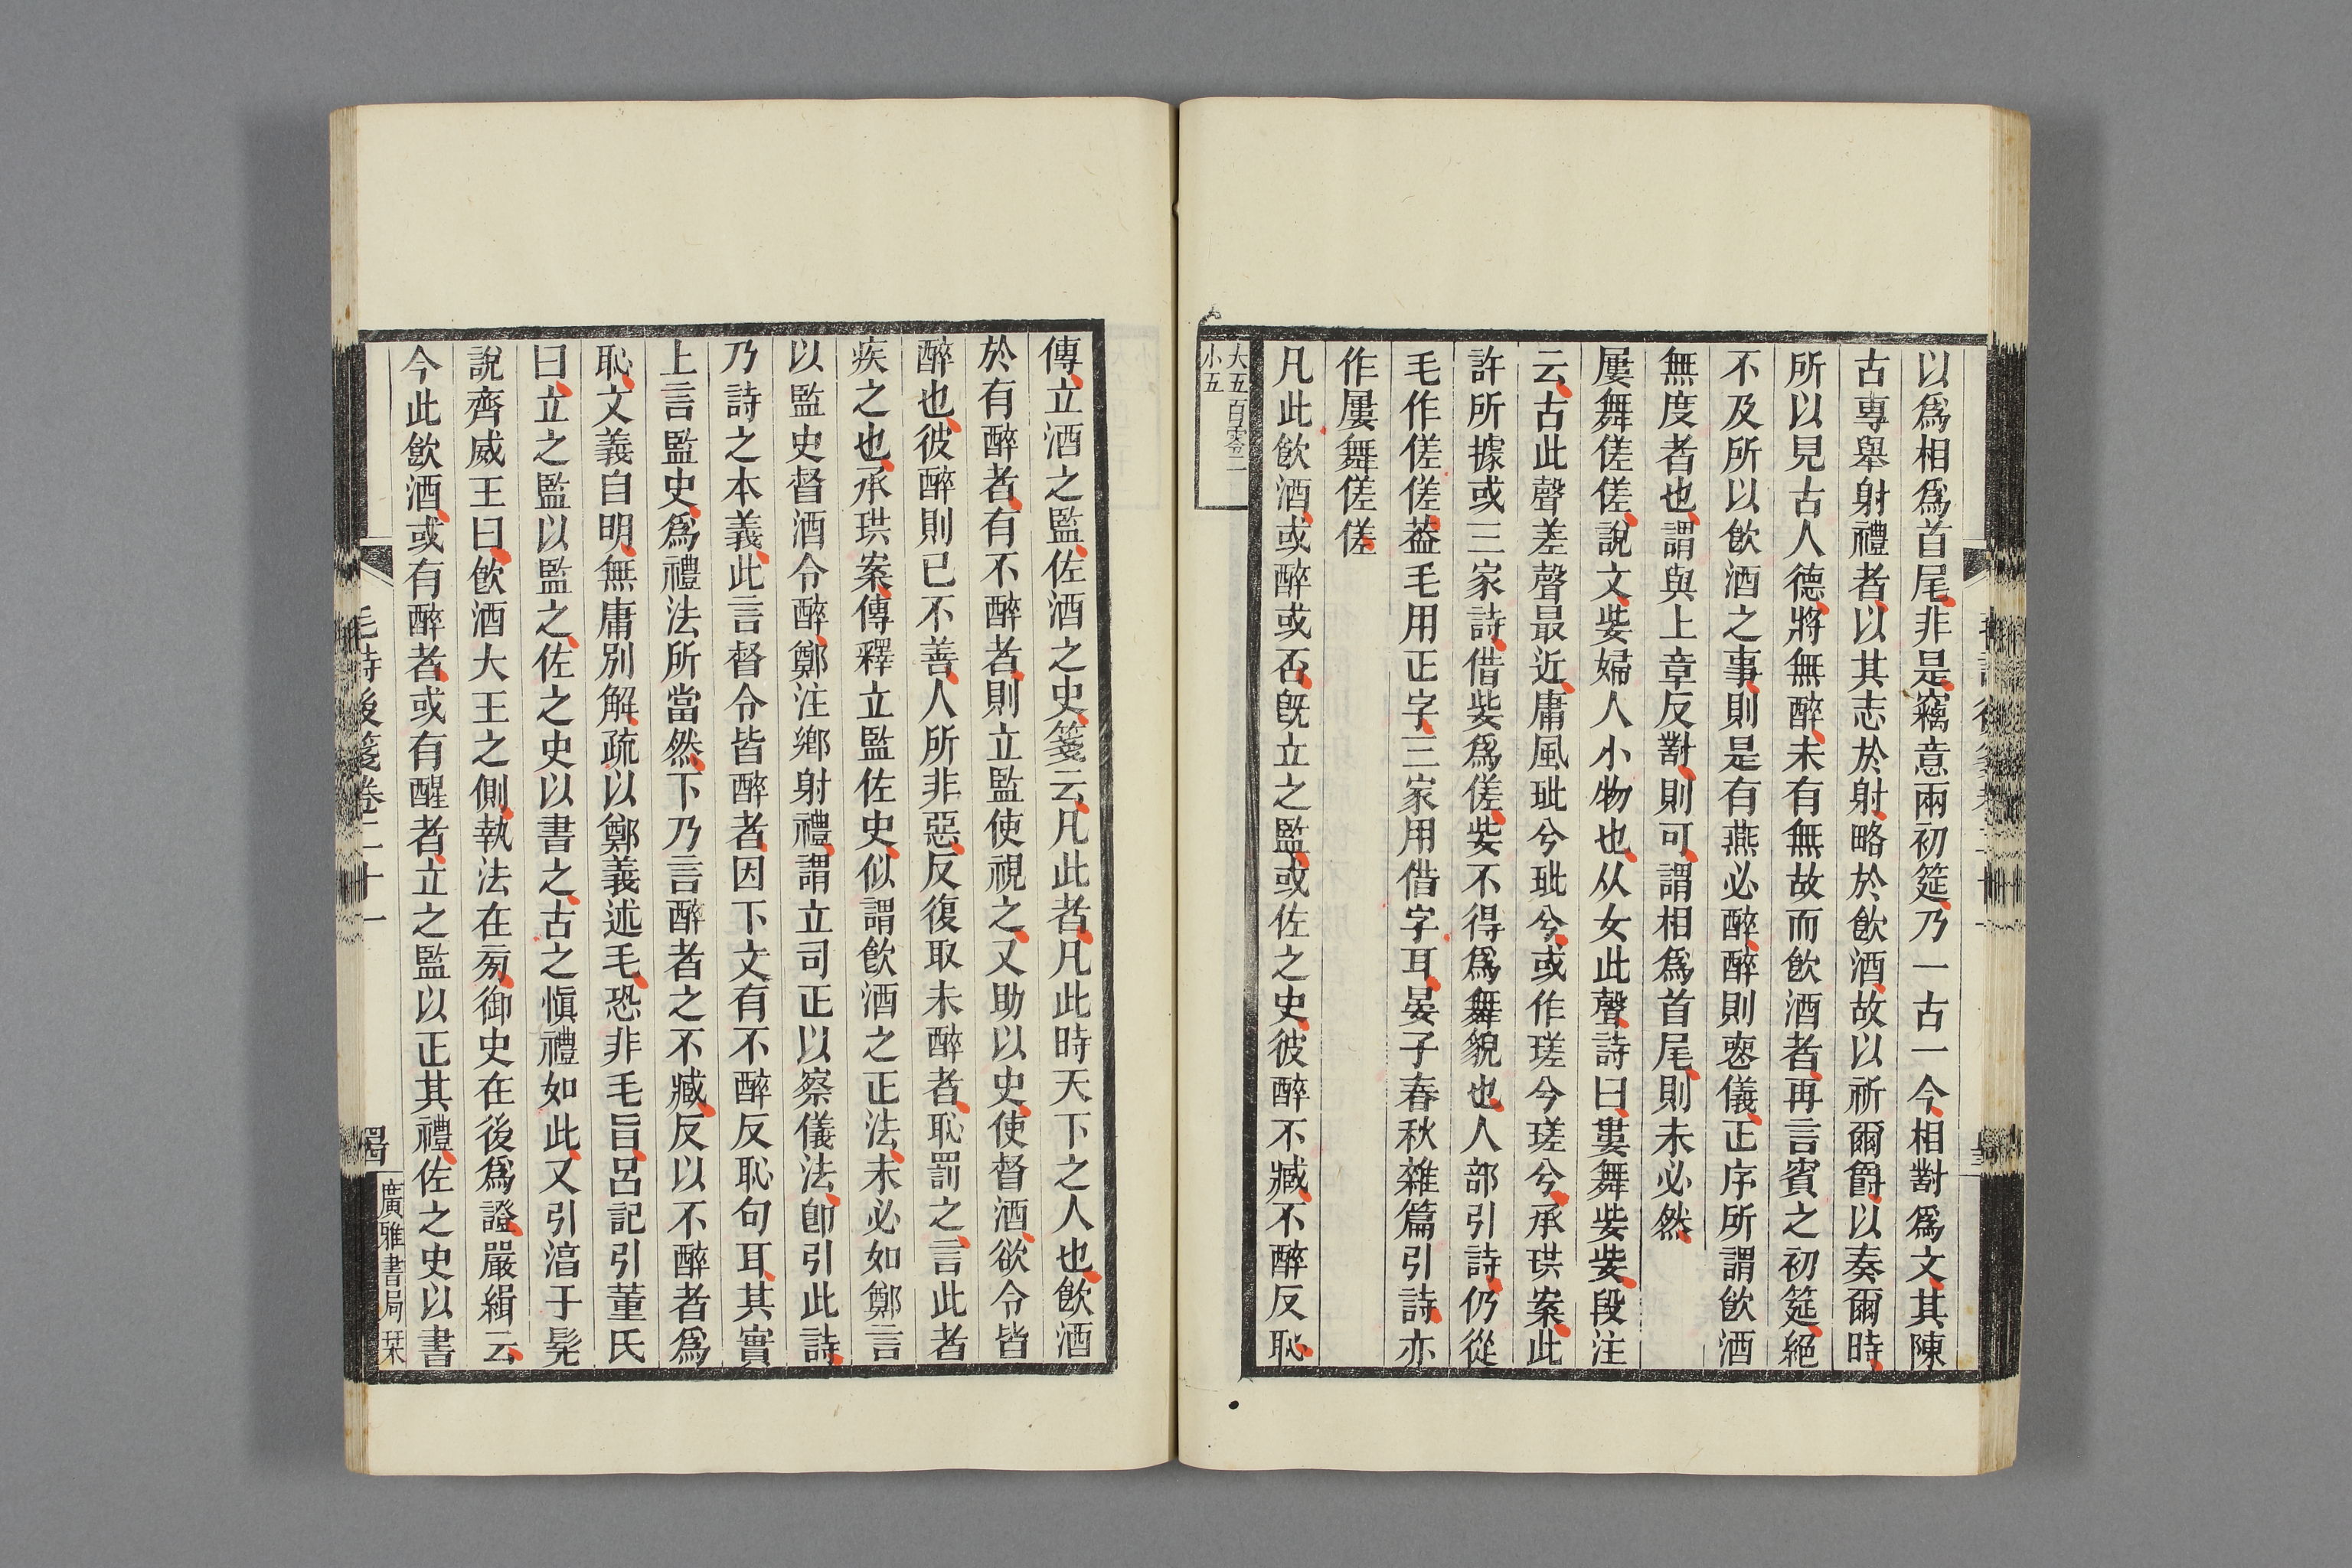 以爲相爲首尾非是竊意兩初筵乃一古一今相對爲文其陳
古專舉射禮者以其志於射略於飮酒故以祈爾爵以奏爾時
所以見古人德將無醉未有無故而飮酒者再言賓之初筵絕
不及所以飮酒之事則是有燕必醉醉則愆儀正序所謂飮酒
無度者也謂與上章反對則可謂相爲首尾則未必然
屢舞傞傞說文姕婦人小物也从女此聲詩曰婁舞姕姕段注
云古此聲差聲最近庸風玼兮玼兮或作瑳兮瑳兮承珙案此
許所據或三家詩借姕爲傞姕不得爲舞貌也人部引詩仍從
毛作傞傞葢毛用正字三家用借字耳晏子春秋雜篇引詩亦
作屢舞傞傞
凡此飮酒或醉或否旣立之監或佐之史彼醉不臧不醉反恥
大五百零二
小五
傳立酒之監佐酒之史箋云凡此者凡此時天下之人也飮酒
於有醉者有不醉者則立監使視之又助以史使督酒欲令皆
醉也彼醉則已不善人所非惡反復取未醉者恥罰之言此者
疾之也承珙案傳釋立監佐史似謂飮酒之正法未必如鄭言
以監史督酒令醉鄭注鄉射禮謂立司正以察儀法卽引此詩
乃詩之本義此言督令皆醉者因下文有不醉反恥句耳其實
上言監史爲禮法所當然下乃言醉者之不臧反以不醉者爲
恥文義自明無庸別解疏以鄭義述毛恐非毛旨呂記引董氏
曰立之監以監之佐之史以書之古之愼禮如此又引湻于髡
說齊威王曰飮酒大王之側執法在㫄御史在後爲證嚴緝云
今此飮酒或有醉者或有醒者立之監以正其禮佐之史以書
毛詩後箋卷二十一
廣雅書局栞